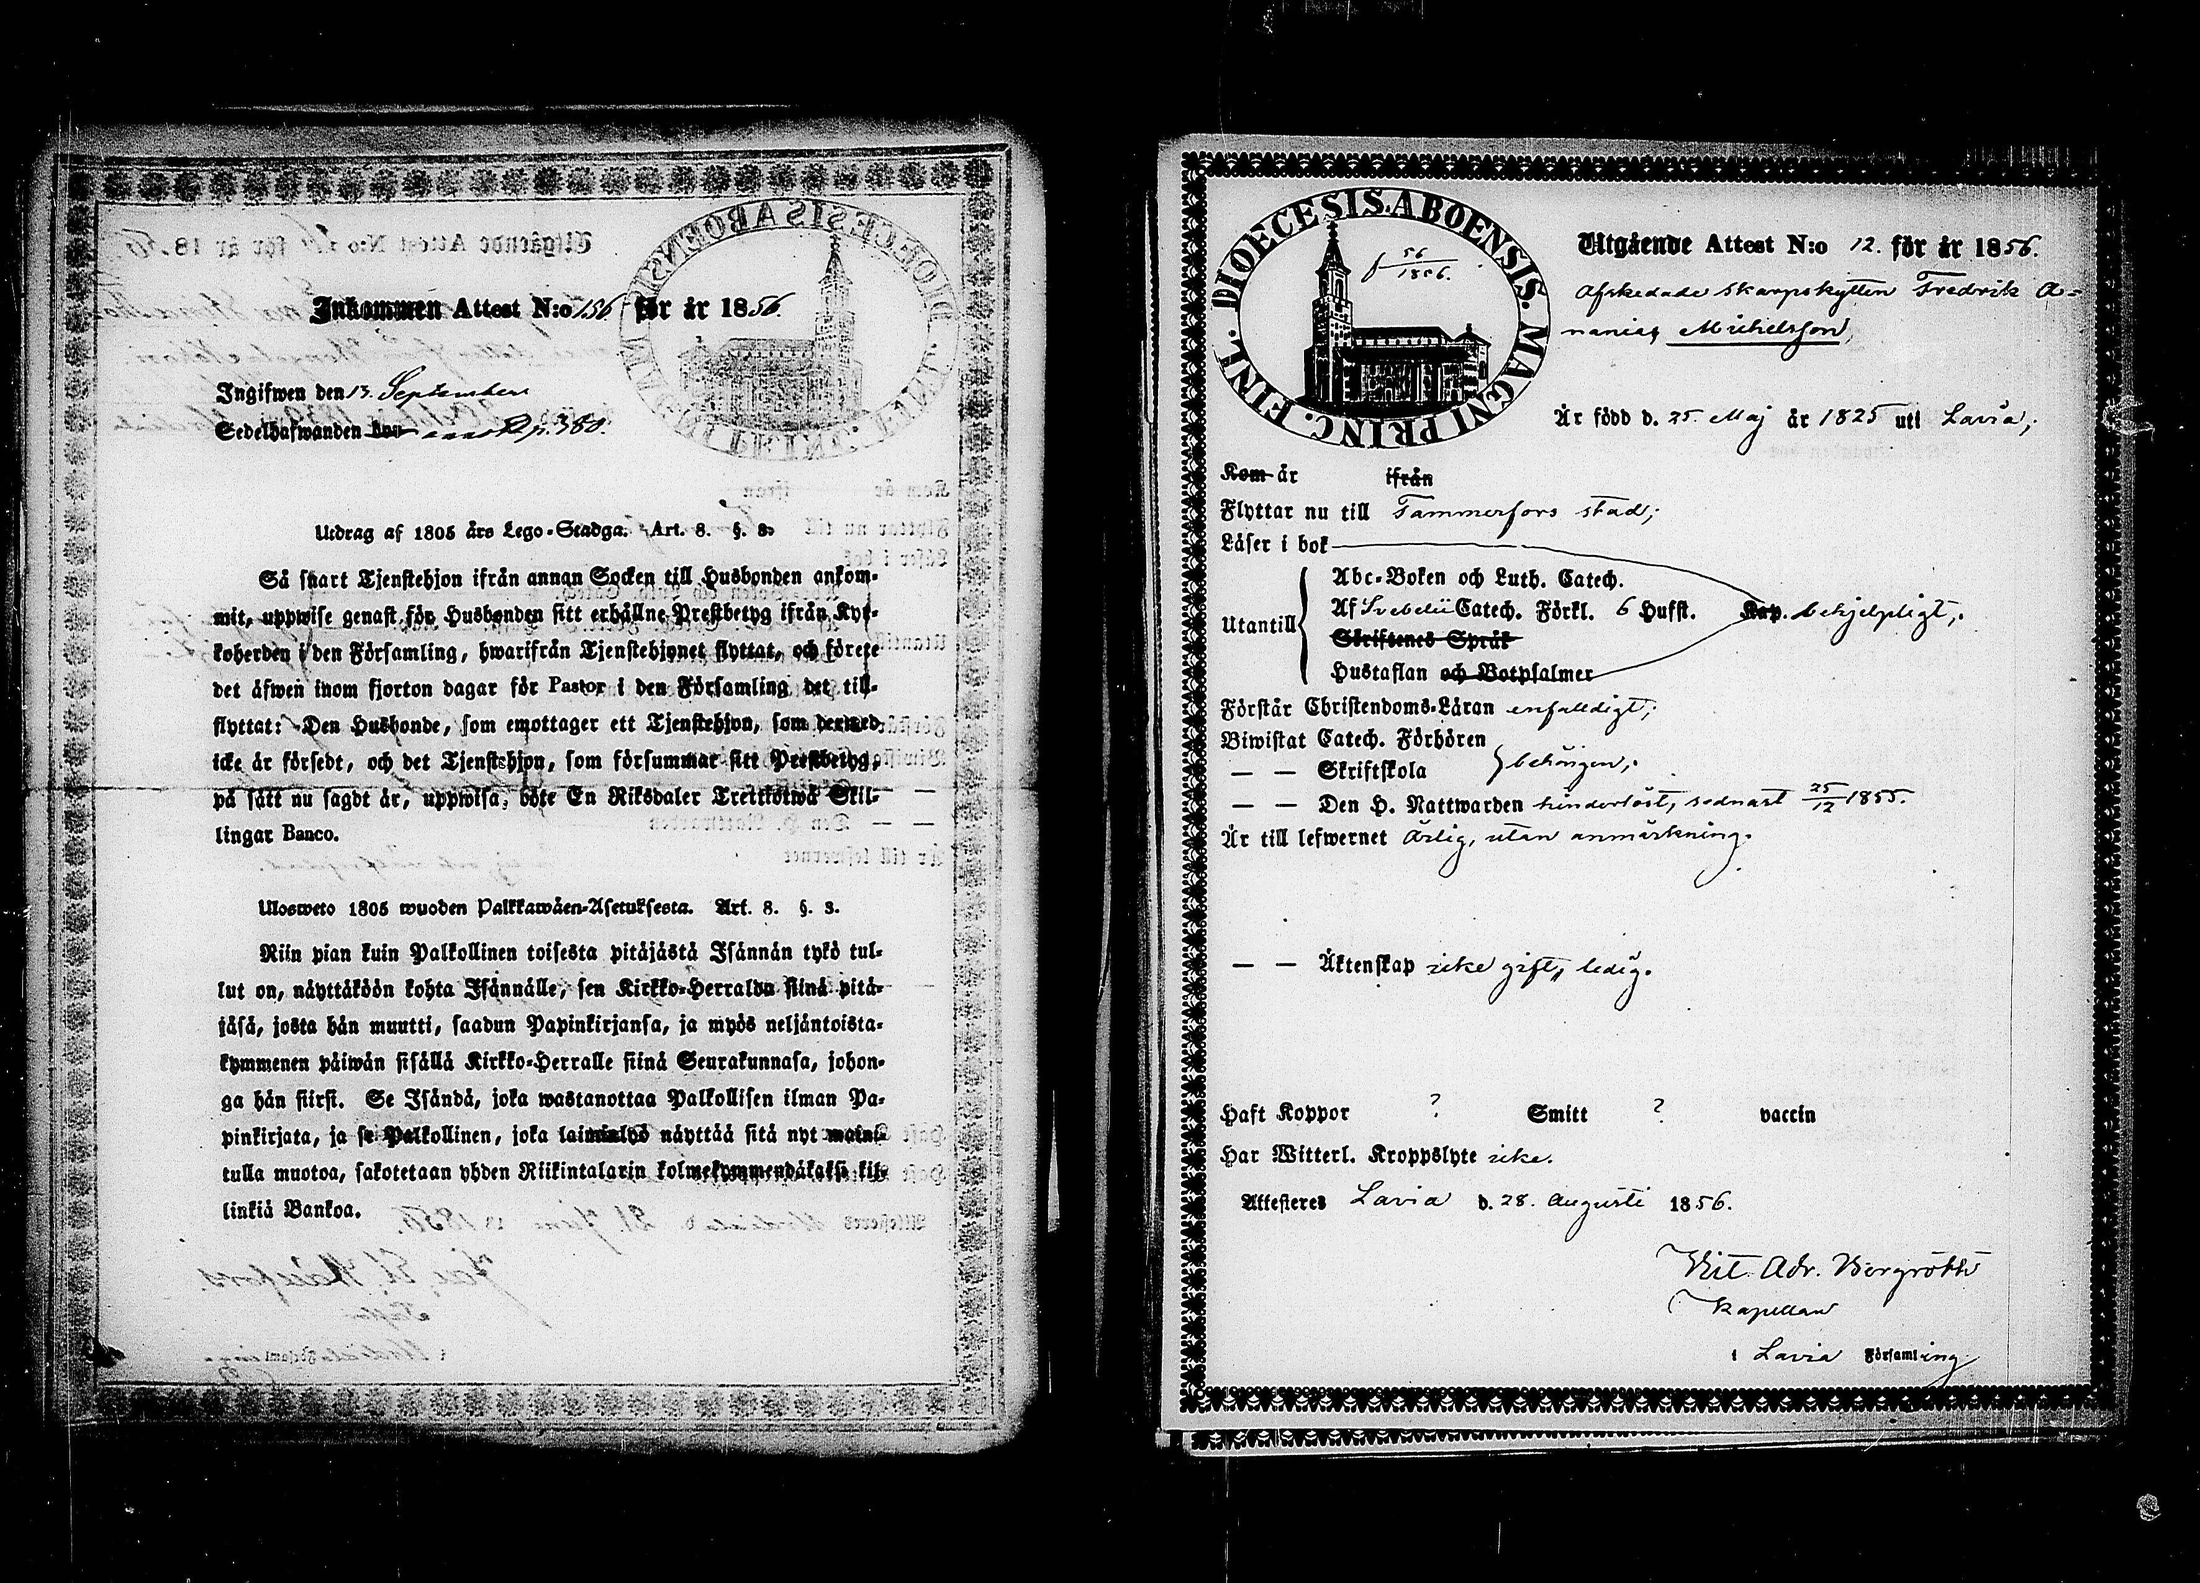 Inkommen Attest N:o 156 för år 1856.
Ingifwen den 13. September
Sedelhafwanden p. 380.
Utdrag af 1805 års Lego-Stadga. Art. 8. §. 3.
Så snart Tjenstehjon ifrån annan Socken till Husbonden ankom-
mit, uppwise genast för Husbonden sitt erhållne Prestbetyg ifrån Kyr-
koherden i den Församling, hwarifrån Tjenstehjonet flyttat, och förete
det äfwen inom fjorton dagar för Pastor i den Församling det till-
flyttat: Den Husbonde, som emottager ett Tjenstehjon, som dermed
icke är försedt, och det Tjenstehjon, som försummar sitt Prestbetyg,
på sätt nu sagdt är, uppwisa, böte En Riksdaler Trettiotwå Skil-
lingar Banco.
Ulosweto 1805 wuoden Palkkawäen-Asetuksesta. Art. 8. §. 3.
Niin pian kuin Palkollinen toisesta pitäjästä Isännän tykö tul-
lut on, näyttäköön kohta Isännälle, sen Kirkko-Herralda siinä pitä-
jäsä, josta hän muutti, saadun Papinkirjansa, ja myös neljäntoista-
kymmenen päiwän sisällä Kirkko-Herralle siinä Seurakunnasa, johon-
ga hän siirst. Se Isändä, joka wastanottaa Palkollisen ilman Pa-
pinkirjata, ja se Palkollinen, joka laiminlyö näyttää sitä nyt maini-
tulla muotoa, sakotetaan yhden Riikintalarin kolmekymmendäkaksi kil-
linkiä Bankoa.
DIOECESIS ABOENSIS. MAGNI PRINC. FINL.
f 56/1856.
Utgående Attest N:o 12. för år 1856.
Afskedade skarpskytten Fredrik A=
nanias Michelsson,
Är född d. 25. Maj år 1825 uti Lavia,.
Kom år ifrån
Flyttar nu till Tammerfors stad;
Läser i bok
Utantill
Abc-Boken och Luth. Catech.
Af Svebelii Catech. Förkl. 6 Hufst. Kap. behjelpligt,.
Skriftenes Språk
Hustaflan och Botpsalmer
Förstår Christendoms-Läran enfalldigt;
Biwistat Catech. Förhören
— — Skriftskola behörigen;
— — Den H. Nattwarden hinderlöst, sednast 25/12 1855.
Är till lefwernet ärlig, utan anmärkning.
— — Äktenskap icke gift, ledig.
Haft Koppor ? Smitt ? vaccin
Har Witterl. Kroppslyte icke.
Attesteres Lavia d. 28. Augusti 1856.
Vit. Adr. Bergroth
Kapellan
i Lavia Församling